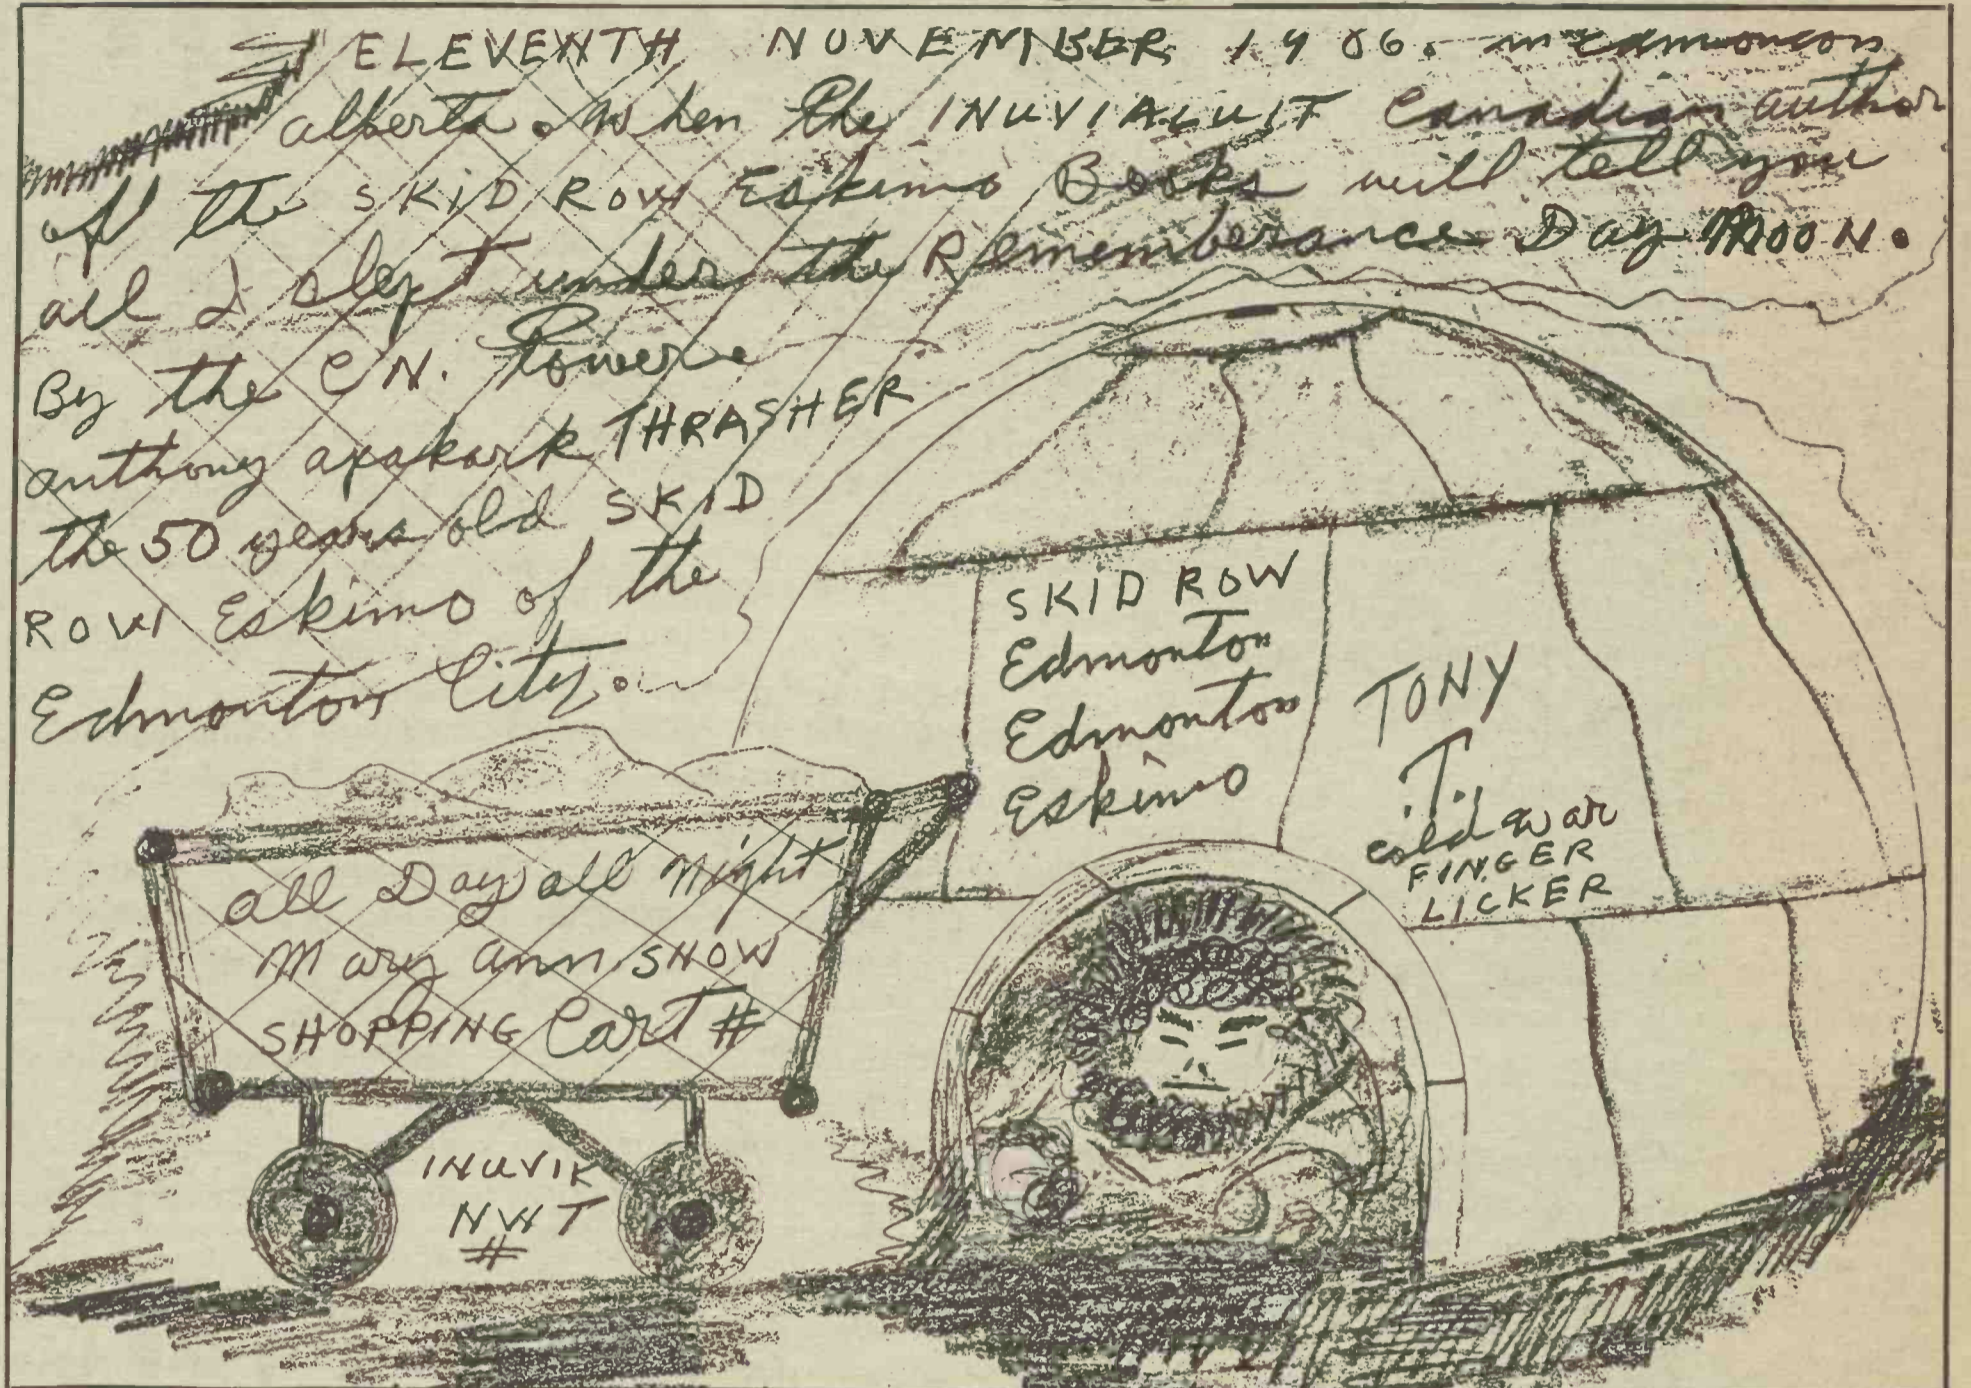 ELEVENTH NOVEMBER 1986. in Edmonton
alberta. When the INUVIALUIT Canadian author
of the SKID ROW Eskimo Books will tell you
all I slept under the Rememberance Day MOON.
By the C.N. Tower
anthony apakark THRASHER
the 50 years old SKID
ROW Eskimo of the
Edmonton City.
SKID ROW
Edmonton
Edmonton
Eskimo
TONY
.T.
cold war
FINGER
LICKER
all Day all night
Mary ann SHOW
SHOPPING Cart #
INUVIK
NWT
#